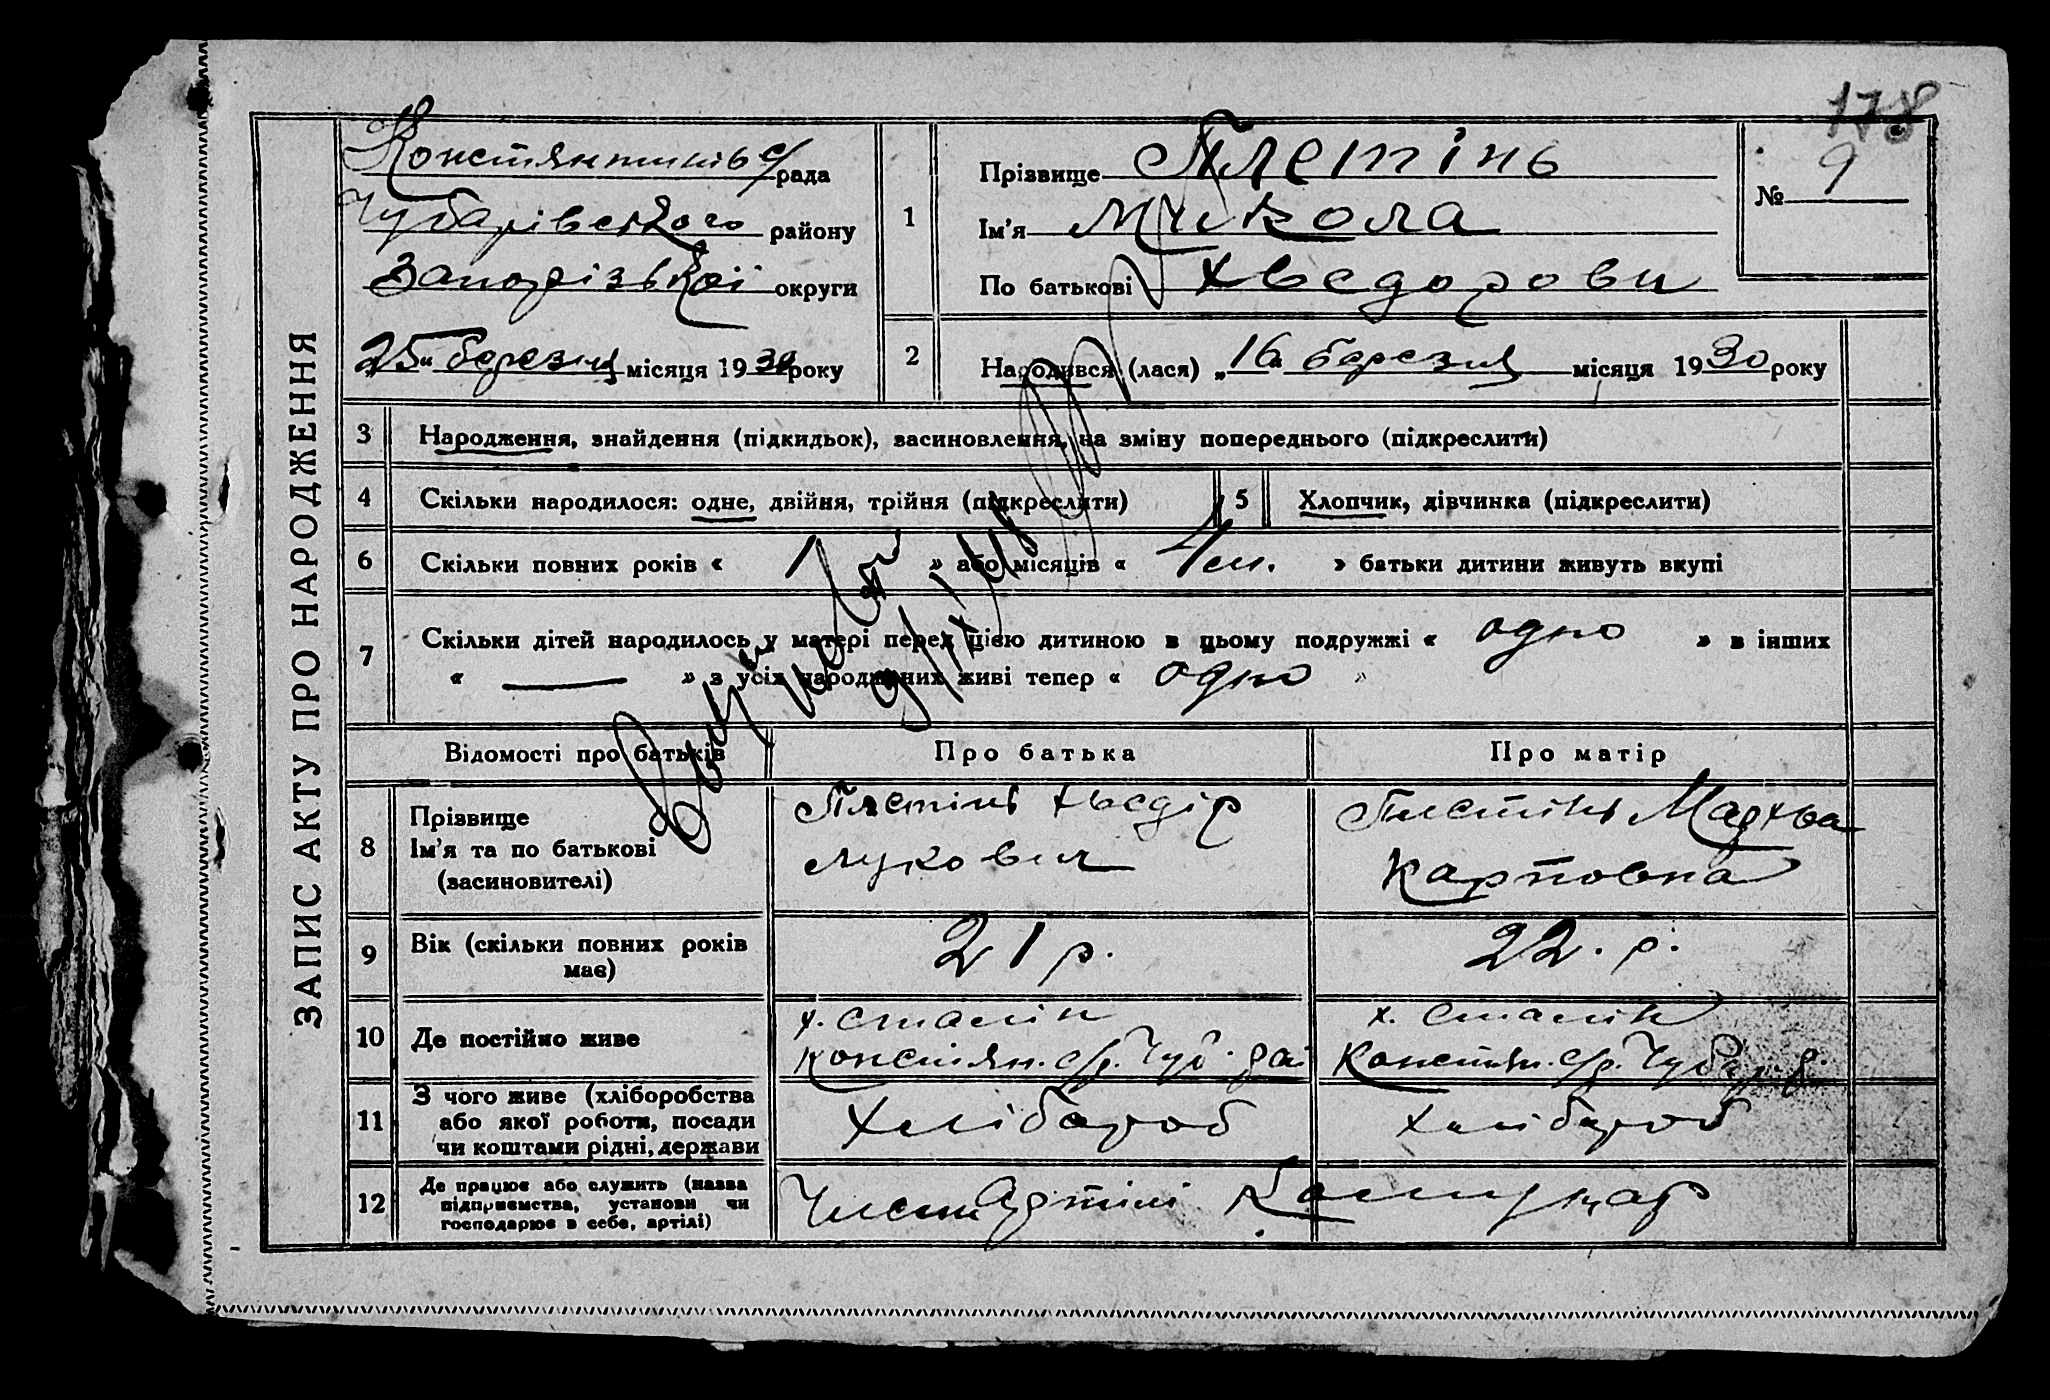 178
ЗАПИС АКТУ ПРО НАРОДЖЕННЯ
Констянтинів с/рада
Чубарівського району
Запорізької округи
25 „ березня місяця 1930 року
1
Прізвище Плетінь
Ім'я Микола
По батькові Хведорови
№ 9
2
Народився (лася) „ 16 “ березня місяця 1930 року
3 Народження, знайдення (підкидьок), засиновлення, на зміну попереднього (підкреслити)
4 Скільки народилося: одне, двійня, трійня (підкреслити) 5 Хлопчик, дівчинка (підкреслити)
6 Скільки повних років « 1 » або місяців « 4 м. » батьки дитини живуть вкупі
7 Скільки дітей народилось у матері перед цією дитиною в цьому подружжі « одно » в інших
« — » з усіх народжених живі тепер « одно »
Відомості про батьків Про батька Про матір
8 Прізвище
Ім'я та по батькові
(засиновителі)
Плетінь Хведір
Лукович
Плетінь Мархва
Карповна
9 Вік (скільки повних років
має)
21 р. 22. р.
10 Де постійно живе
х. Сталін
Констян. с/р. Чуб. ра
х. Сталін
Констян. с/р. Чубар. р.
11 З чого живе (хліборобства
або якої роботи, посади
чи коштами рідні, держави
Хлібороб Хлібороб
12 Де працює або служить (назва
підприємства, установи чи
господарює в себе, артілі)
Член Артілі